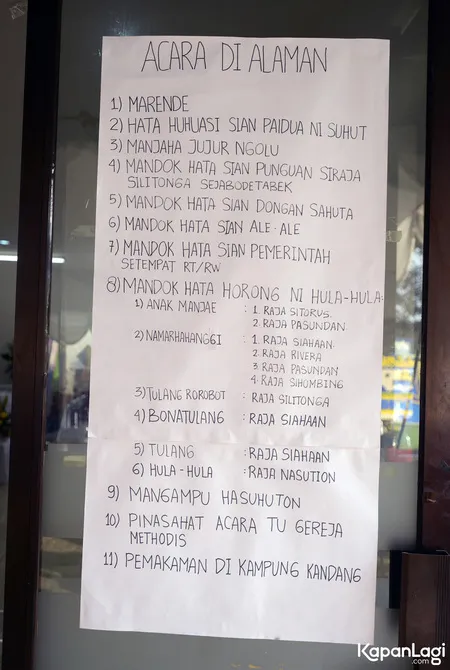 ACARA DI ALAMAN
1) MARENDE
2) HATA HUHUASI SIAN PAIDUA NI SUHUT
3) MANJAHA JUJUR NGOLU
4) MANDOK HATA SIAN PUNGUAN SIRAJA
SILITONGA SEJABODETABEK
5) MANDOK HATA SIAN DONGAN SAHUTA
6) MANDOK HATA SIAN ALE-ALE
7) MANDOK HATA SIAN PEMERINTAH
SETEMPAT RT/RW
8) MANDOK HATA HORONG NI HULA-HULA:
1) ANAK MANJAE : 1. RAJA SITORUS.
2. RAJA PASUNDAN
2) NAMARHAHANGGI : 1. RAJA SIAHAAN.
2. RAJA RIVERA
3 RAJA PASUNDAN
4 RAJA SIHOMBING
3) TULANG ROROBOT : RAJA SILITONGA
4) BONATULANG : RAJA SIAHAAN
5) TULANG : RAJA SIAHAAN
6) HULA-HULA : RAJA NASUTION
9) MANGAMPU HASUHUTON
10) PINASAHAT ACARA TU GEREJA
METHODIS
11) PEMAKAMAN DI KAMPUNG KANDANG
KapanLagi
.com